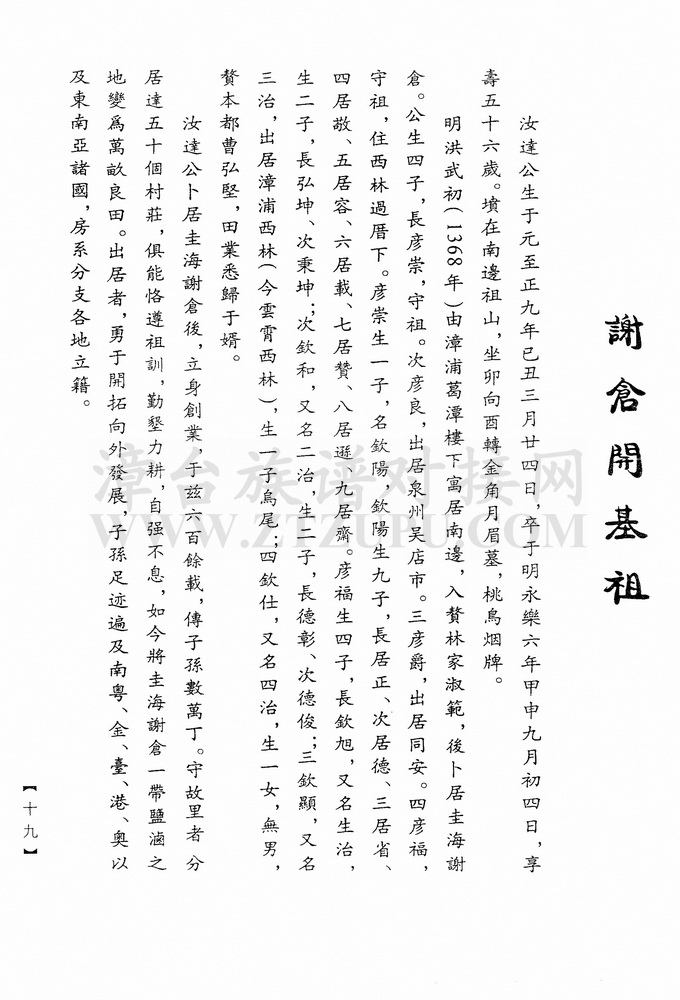 謝倉開基祖
汝達公生于元至正九年己丑三月廿四日，卒于明永樂六年甲申九月初四日，享
壽五十六歲。墳在南邊祖山，坐卯向酉轉金角月眉墓，桃鳥烟牌。
明洪武初（1368年）由漳浦葛潭樓下寓居南邊，入贅林家淑範，後卜居圭海謝
倉。公生四子，長彥崇，守祖。次彥良，出居泉州吴店市。三彥爵，出居同安。四彥福，
守祖，住西林過厝下。彥崇生一子，名欽陽，欽陽生九子，長居正、次居德、三居省、
四居敬、五居容、六居載、七居贊、八居遜、九居齋。彥福生四子，長欽旭，又名生治，
生二子，長弘坤、次秉坤；次欽和，又名二治，生二子，長德彰、次德俊；三欽顯，又名
三治，出居漳浦西林（今雲霄西林），生一子烏尾；四欽仕，又名四治，生一女，無男，
贅本都曹弘堅，田業悉歸于婿。
汝達公卜居圭海謝倉後，立身創業，于兹六百餘載，傳子孫數萬丁。守故里者分
居達五十個村莊，俱能恪遵祖訓，勤墾力耕，自强不息，如今將圭海謝倉一帶鹽滷之
地變爲萬畝良田。出居者，勇于開拓向外發展，子孫足迹遍及南粤、金、臺、港、奥以
及東南亞諸國，房系分支各地立籍。
【十九】
漳台族谱对接网
WWW.ZTZUPU.COM